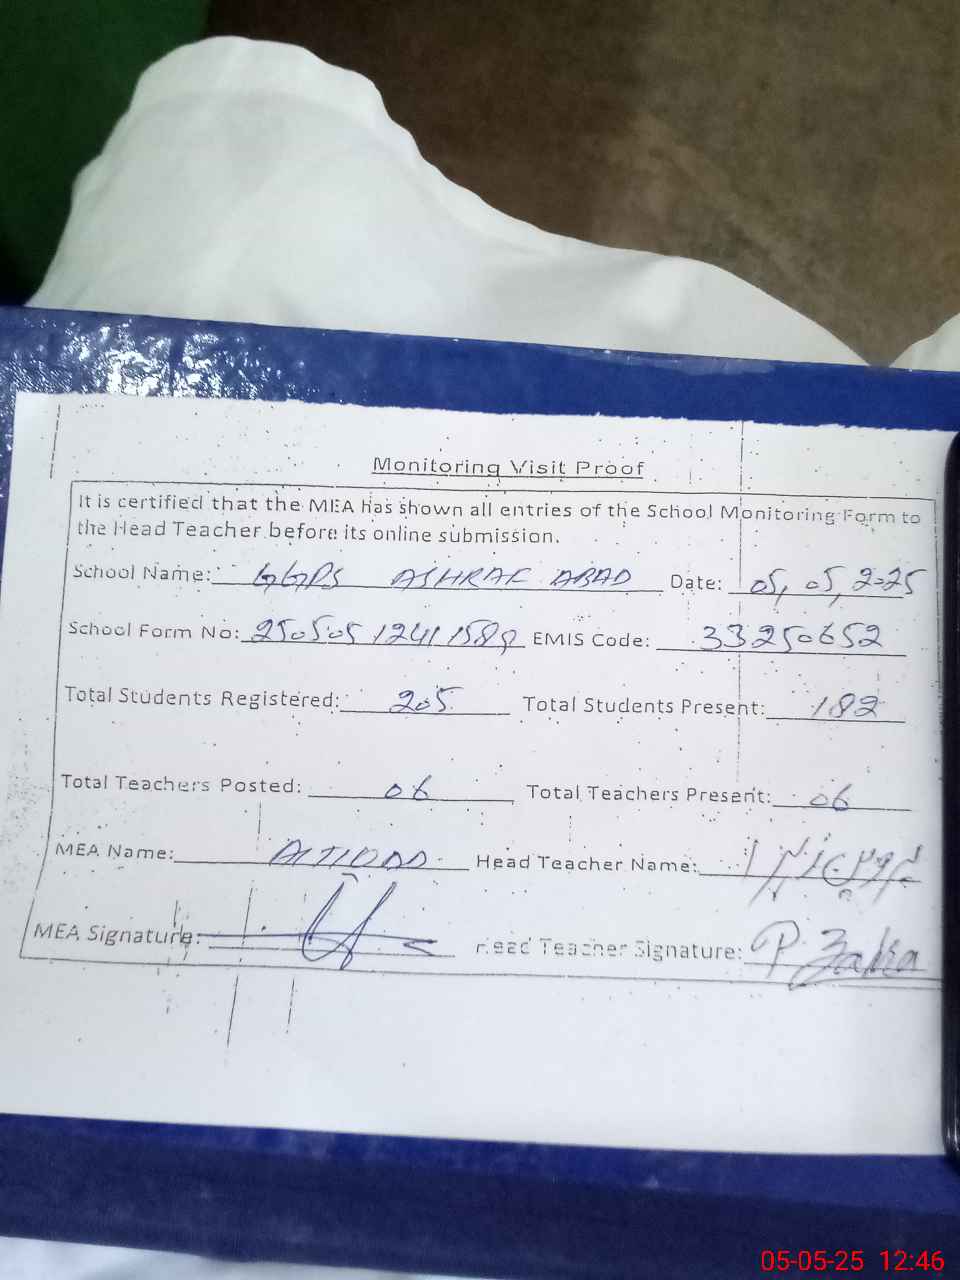 Monitoring Visit Proof
It is certified that the MEA has shown all entries of the School Monitoring Form to
the Head Teacher before its online submission.
School Name: GGPS ASHRAF ABAD Date: 05, 05, 2025
School Form No: 250505 EMIS Code: 33250652
Total Students Registered: 205 Total Students Present: 182
Total Teachers Posted: 06 Total Teachers Present: 06
MEA Name: Head Teacher Name:
MEA Signature: Head Teacher Signature: P. Zahra
05-05-25 12:46